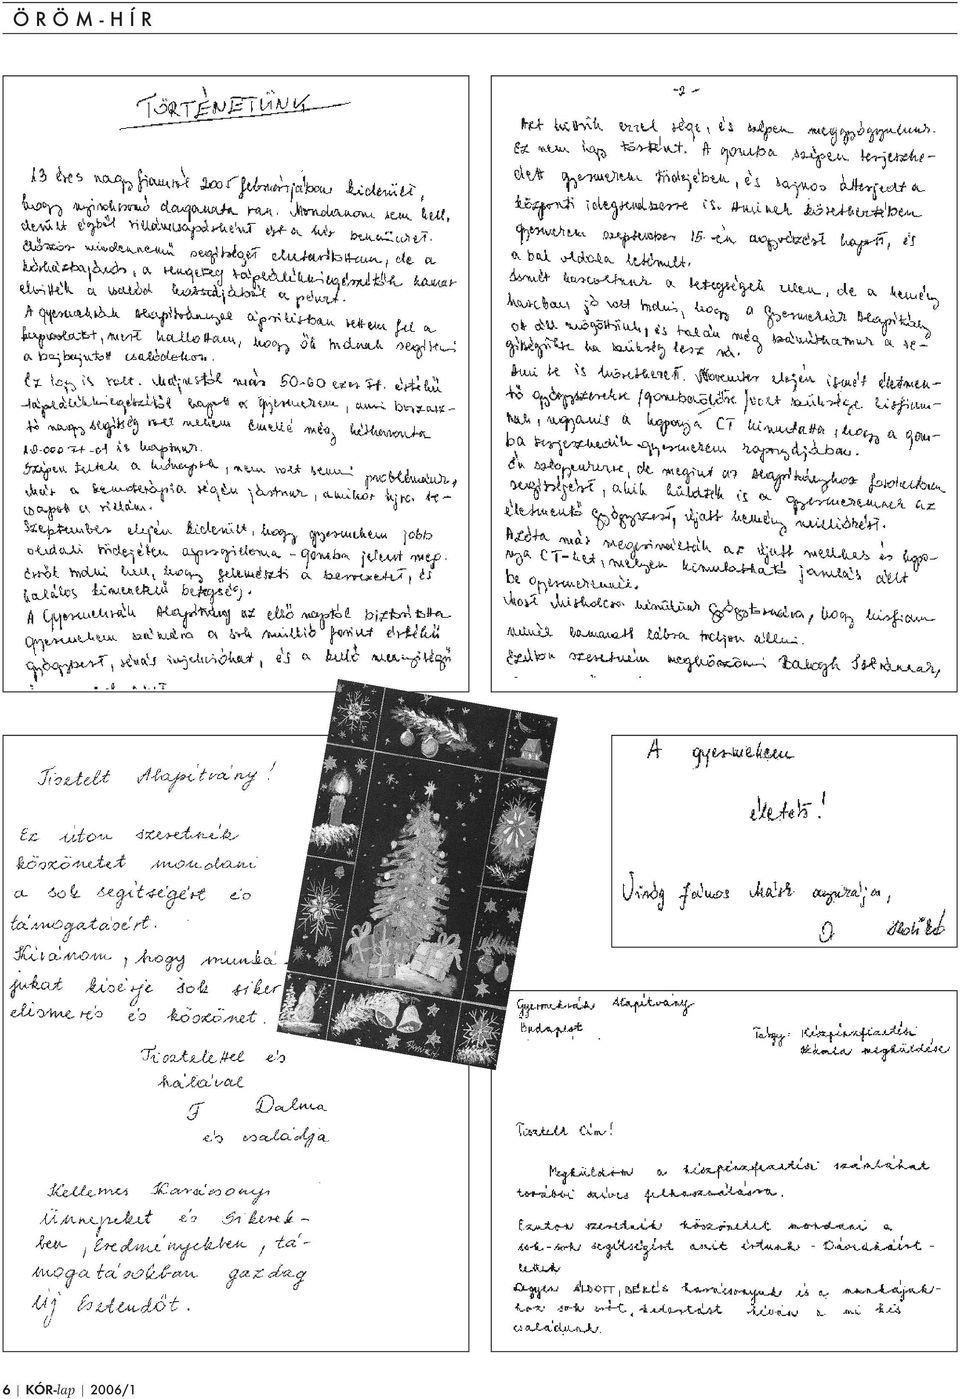 ÖRÖM-HÍR
TÖRTÉNETÜNK
13 éves nagyfiamról 2005 februárjában kiderült,
hogy nyirokcsomó daganata van. Mondanom sem kell,
derült égből villámcsapásként ért a hír bennünket.
Először mindennemű segítséget elutasítottam, de a
kórházbajárás, a rengeteg táplálékkiegészítők hamar
elvitték a család kasszájából a pénzt.
A Gyermekrák Alapítvánnyal áprilisban vettem fel a
kapcsolatot, mert hallottam, hogy ők tudnak segíteni
a bajbajutott családokon.
Ez így is volt. Májustól már 50-60 ezer Ft. értékű
táplálékkiegészítőt kapott a gyermekem, ami borzasz-
tó nagy segítség volt nekem. Emellé még kéthavonta
10.000 Ft-ot is kaptunk.
Szépen teltek a hónapok, nem volt semmi problémánk,
már a kemoterápia végén jártunk, amikor újra le-
csapott a villám.
Szeptember elején kiderült, hogy gyermekem jobb
oldali tüdejében aspergilloma - gomba jelent meg.
Erről tudni kell, hogy felemészti a szervezetet, és
halálos kimenetelű betegség.
A Gyermekrák Alapítvány az első naptól biztosította
gyermekem számára a sok millió forint értékű
gyógyszert, vénás injekciókat, és a kellő mennyiségű
-2-
Azt hittük ezzel vége, és szépen meggyógyulunk.
Ez nem így történt. A gomba szépen terjeszke-
dett gyermekem tüdejében, és sajnos átterjedt a
központi idegrendszerre is. Aminek következtében
gyermekem szeptember 15-én agyvérzést kapott, és
a bal oldala lebénult.
Ismét harcoltunk a betegségek ellen, de a kemény
harcban jó volt tudni, hogy a Gyermekrák Alapítvány
ott áll mögöttünk, és talán még számíthatunk a se-
gítségükre ha szükség lesz rá.
Ami be is következett. November elején ismét életmen-
tő gyógyszerekre /gombaölőkre/ volt szüksége kisfiam-
nak, ugyanis a koponya CT kimutatta, hogy a gom-
ba terjeszkedik gyermekem agyában.
Én szégyenkezve, de megint az Alapítványhoz fordultam
segítségért, akik küldték is a gyermekemnek az
életmentő gyógyszert, újabb kemény milliókért.
Azóta már megcsinálták az újabb mellkas és kopo-
nya CT-ket, melyen kimutatható javulás állt
be gyermekemnél.
Most Miskolcra kerülünk gyógytornára, hogy kisfiam
minél hamarabb lábra tudjon állni.
Ezúton szeretném megköszönni Balogh Istvánnak,
Tisztelt Alapítvány!
Ez úton szeretnék
köszönetet mondani
a sok segítségért és
támogatásért.
Kívánom, hogy munká-
jukat kisérje sok siker
elismerés és köszönet.
Tisztelettel és
hálával
F Dalma
és családja
Kellemes Karácsonyi
Ünnepeket és Sikerek-
ben, Eredményekben, tá-
mogatásokban gazdag
Új Esztendőt.
A gyermekem
életét!
Virág János Márk anyukája,
O Ildikó
Gyermekrák Alapítvány
Budapest
Tárgy: Készpénzfizetési
számla megküldése
Tisztelt Cím!
Megküldöm a készpénzfizetési számlákat
további szíves felhasználásra.
Ezúton szeretnék köszönetet mondani a
sok-sok segítségért amit értünk - Dávidkáért -
tettek
Legyen ÁLDOTT, BÉKÉS karácsonyuk és a munkájuk-
hoz sok erőt, kitartást kíván a mi kis
családunk.
6 | KÓR-lap | 2006/1